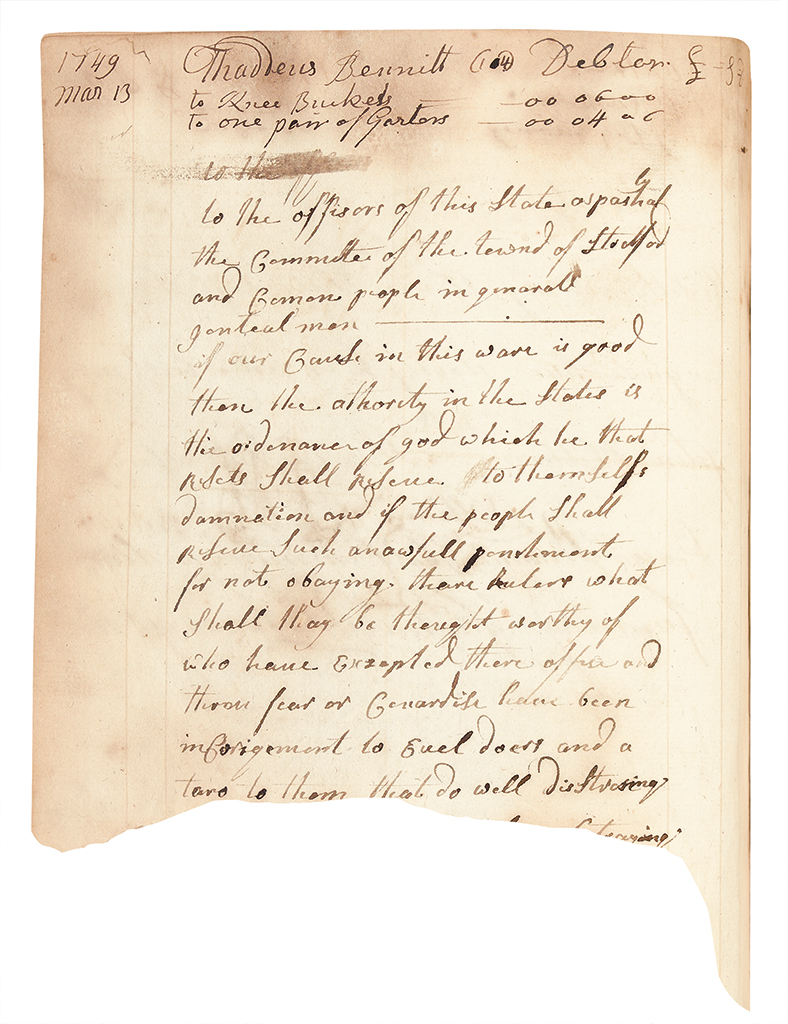 1749
Mar 13
Thaddeus Bennitt Debtor £
to Knee Buckels — 00 06 00
to one pair of Garters — 00 04 06
to the
to the offisors of this State aspashaly
the Committe of the townd of Stratford
and Comon people in genarall
genteal men
if our Cause in this ware is good
then the athority in the States is
the ordenance of god which he that
resets shall reseve to themselfs
damnation and if the people shall
reseve such an awfull ponshment
for not obaying theare Rulers what
shall thay be thought worthy of
who have Excepted there offise and
throu fear or Couardise have been
incorigement to Evel doers and a
taro to them that do well distresing